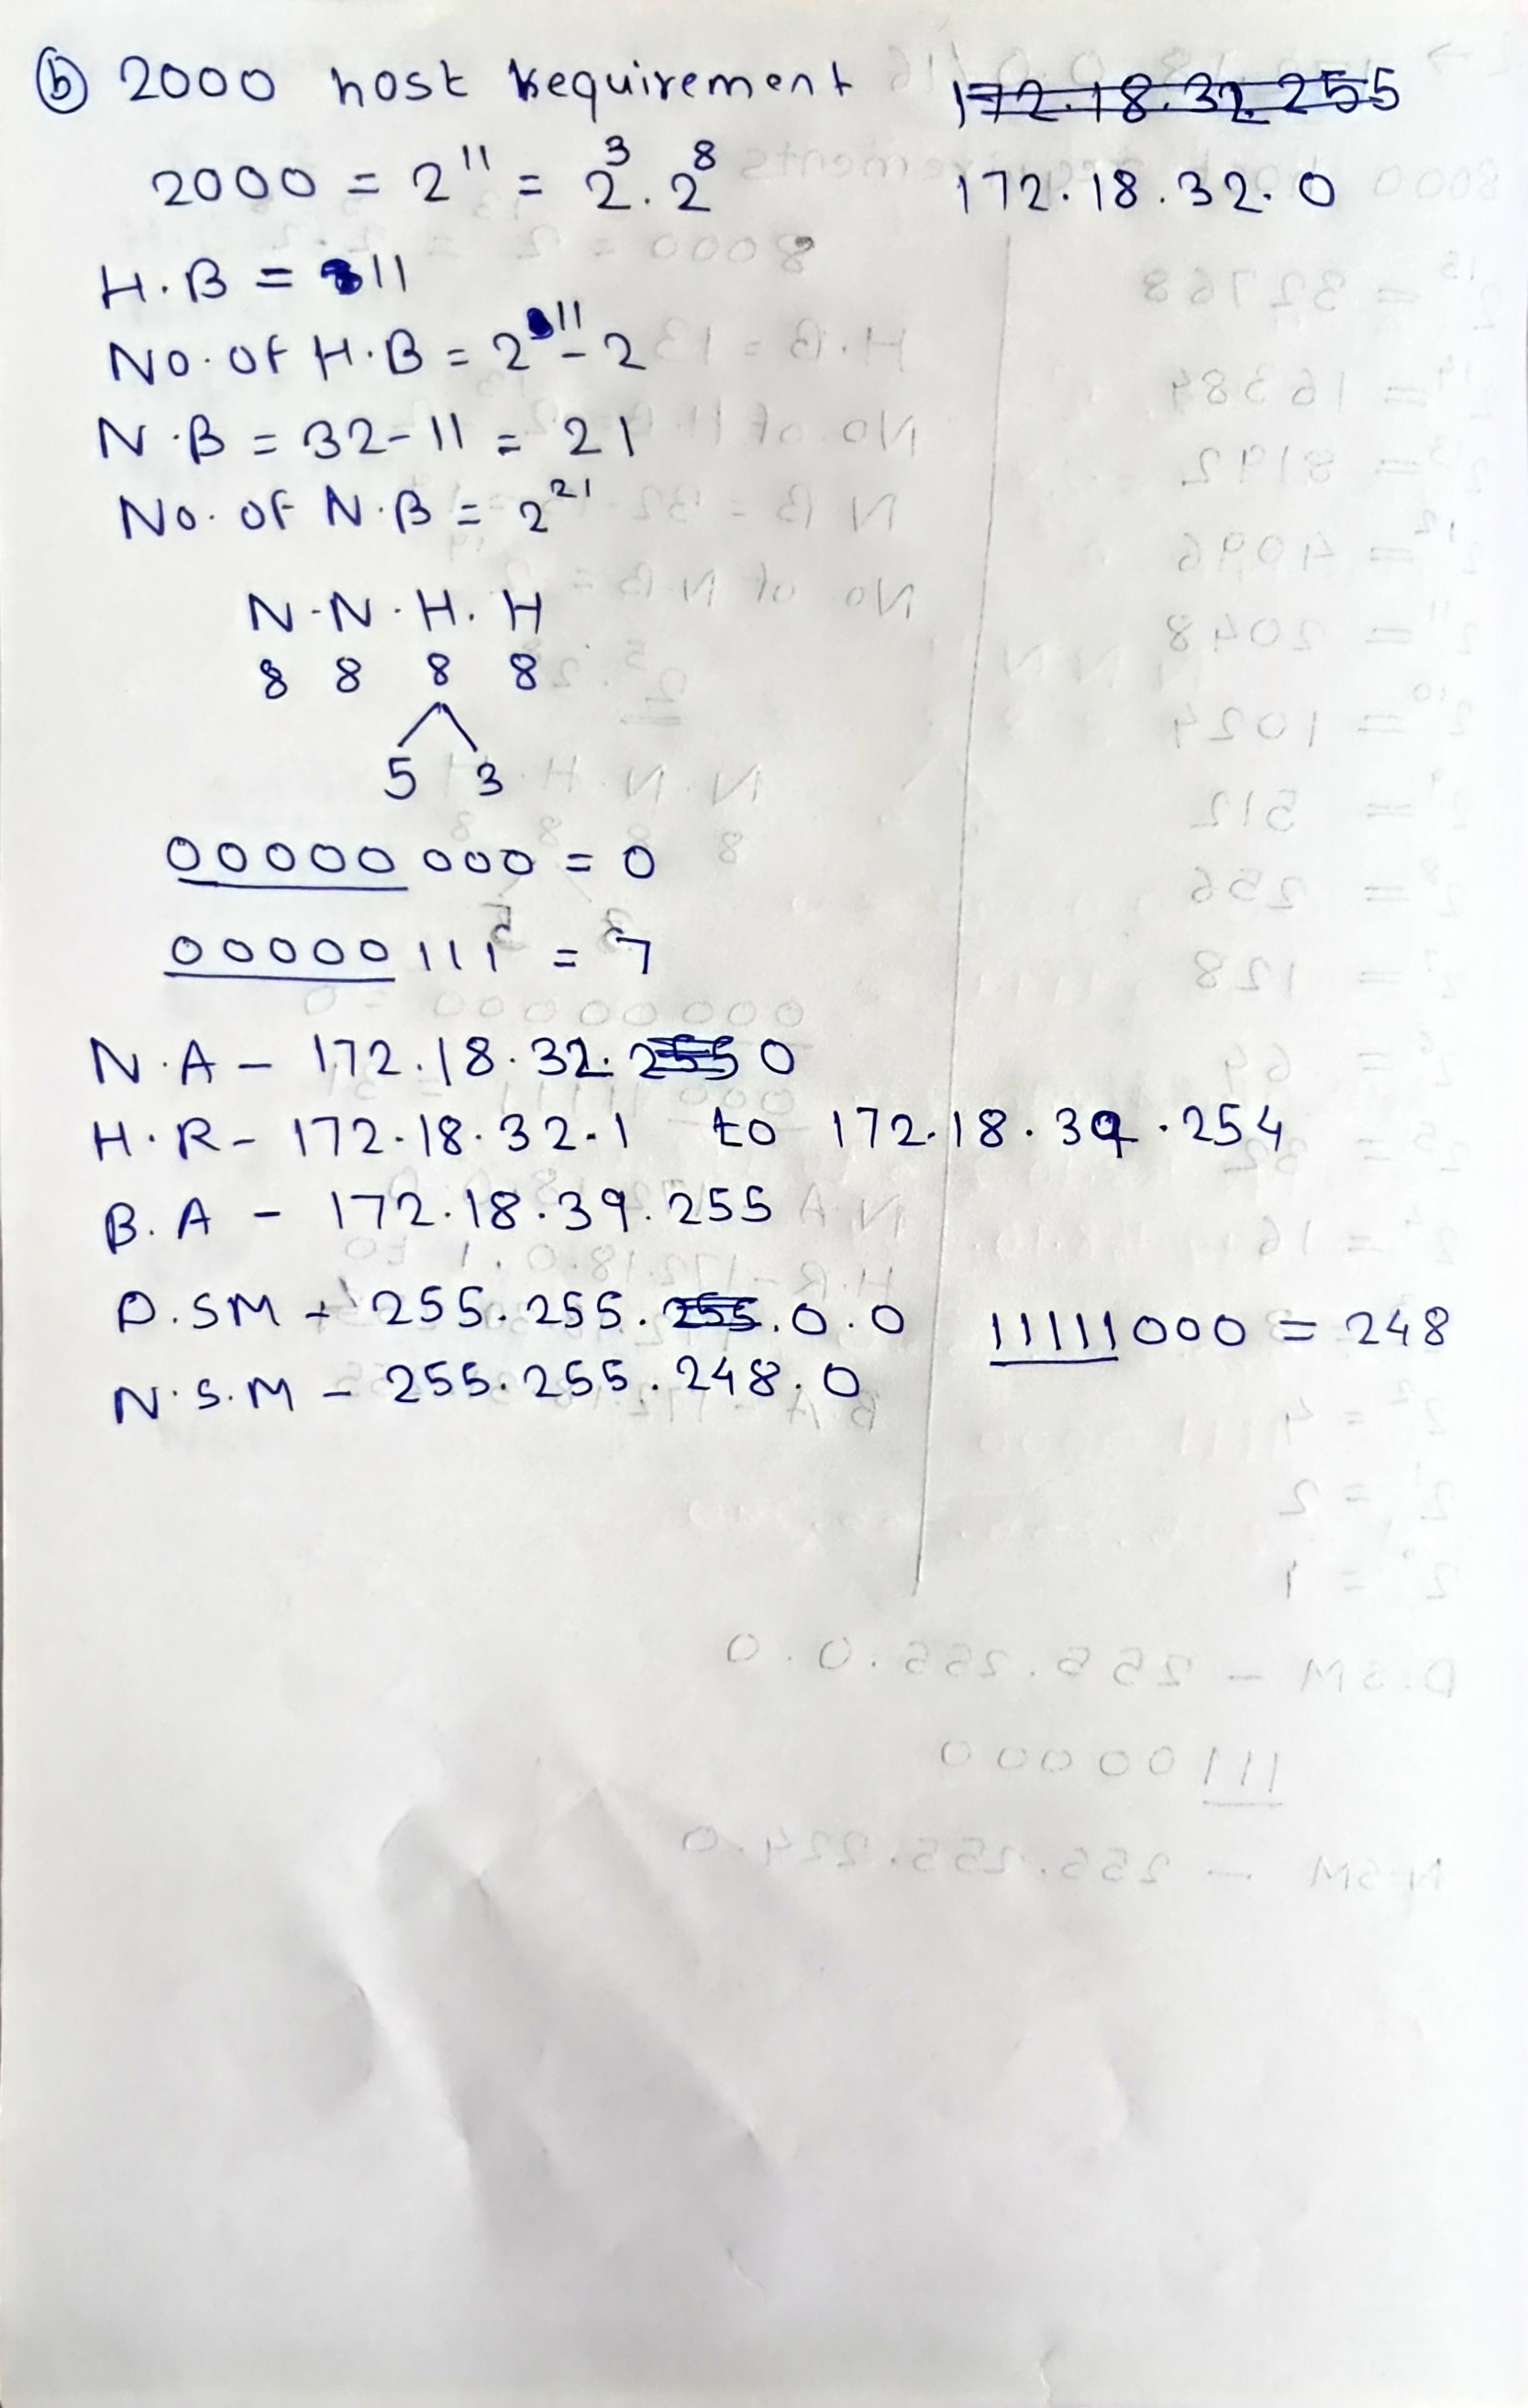 ⓑ 2000 host requirement 172.18.32.255
2000 = 2¹¹ = 2³. 2⁸ 172.18.32.0
H.B = 11
No. of H.B = 2¹¹ - 2
N.B = 32 - 11 = 21
No. of N.B = 2²¹
N.N.H.H
8 8 8 8
5 3
00000 000 = 0
00000 111 = 7
N.A - 172.18.32.255 0
H.R - 172.18.32.1 to 172.18.39.254
B.A - 172.18.39.255
D.SM - 255.255.255.0.0 11111000 = 248
N.S.M - 255.255.248.0